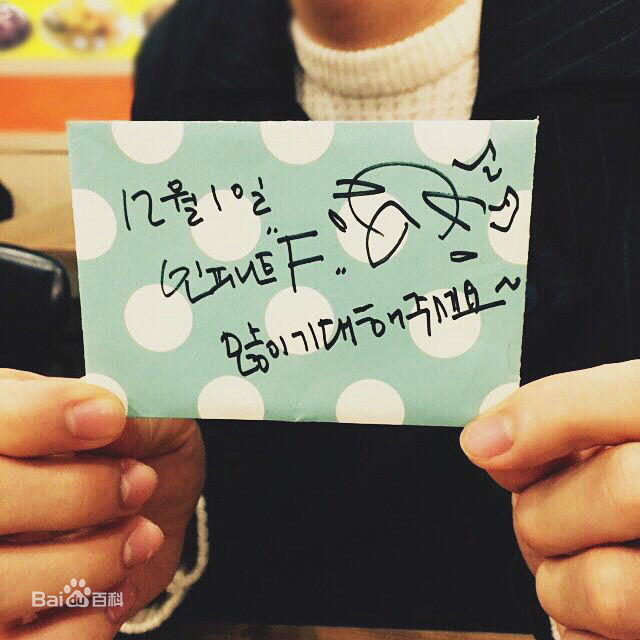 12월 1일
인피니트 "F"
많이 기대해주세요~
Bai du 百科